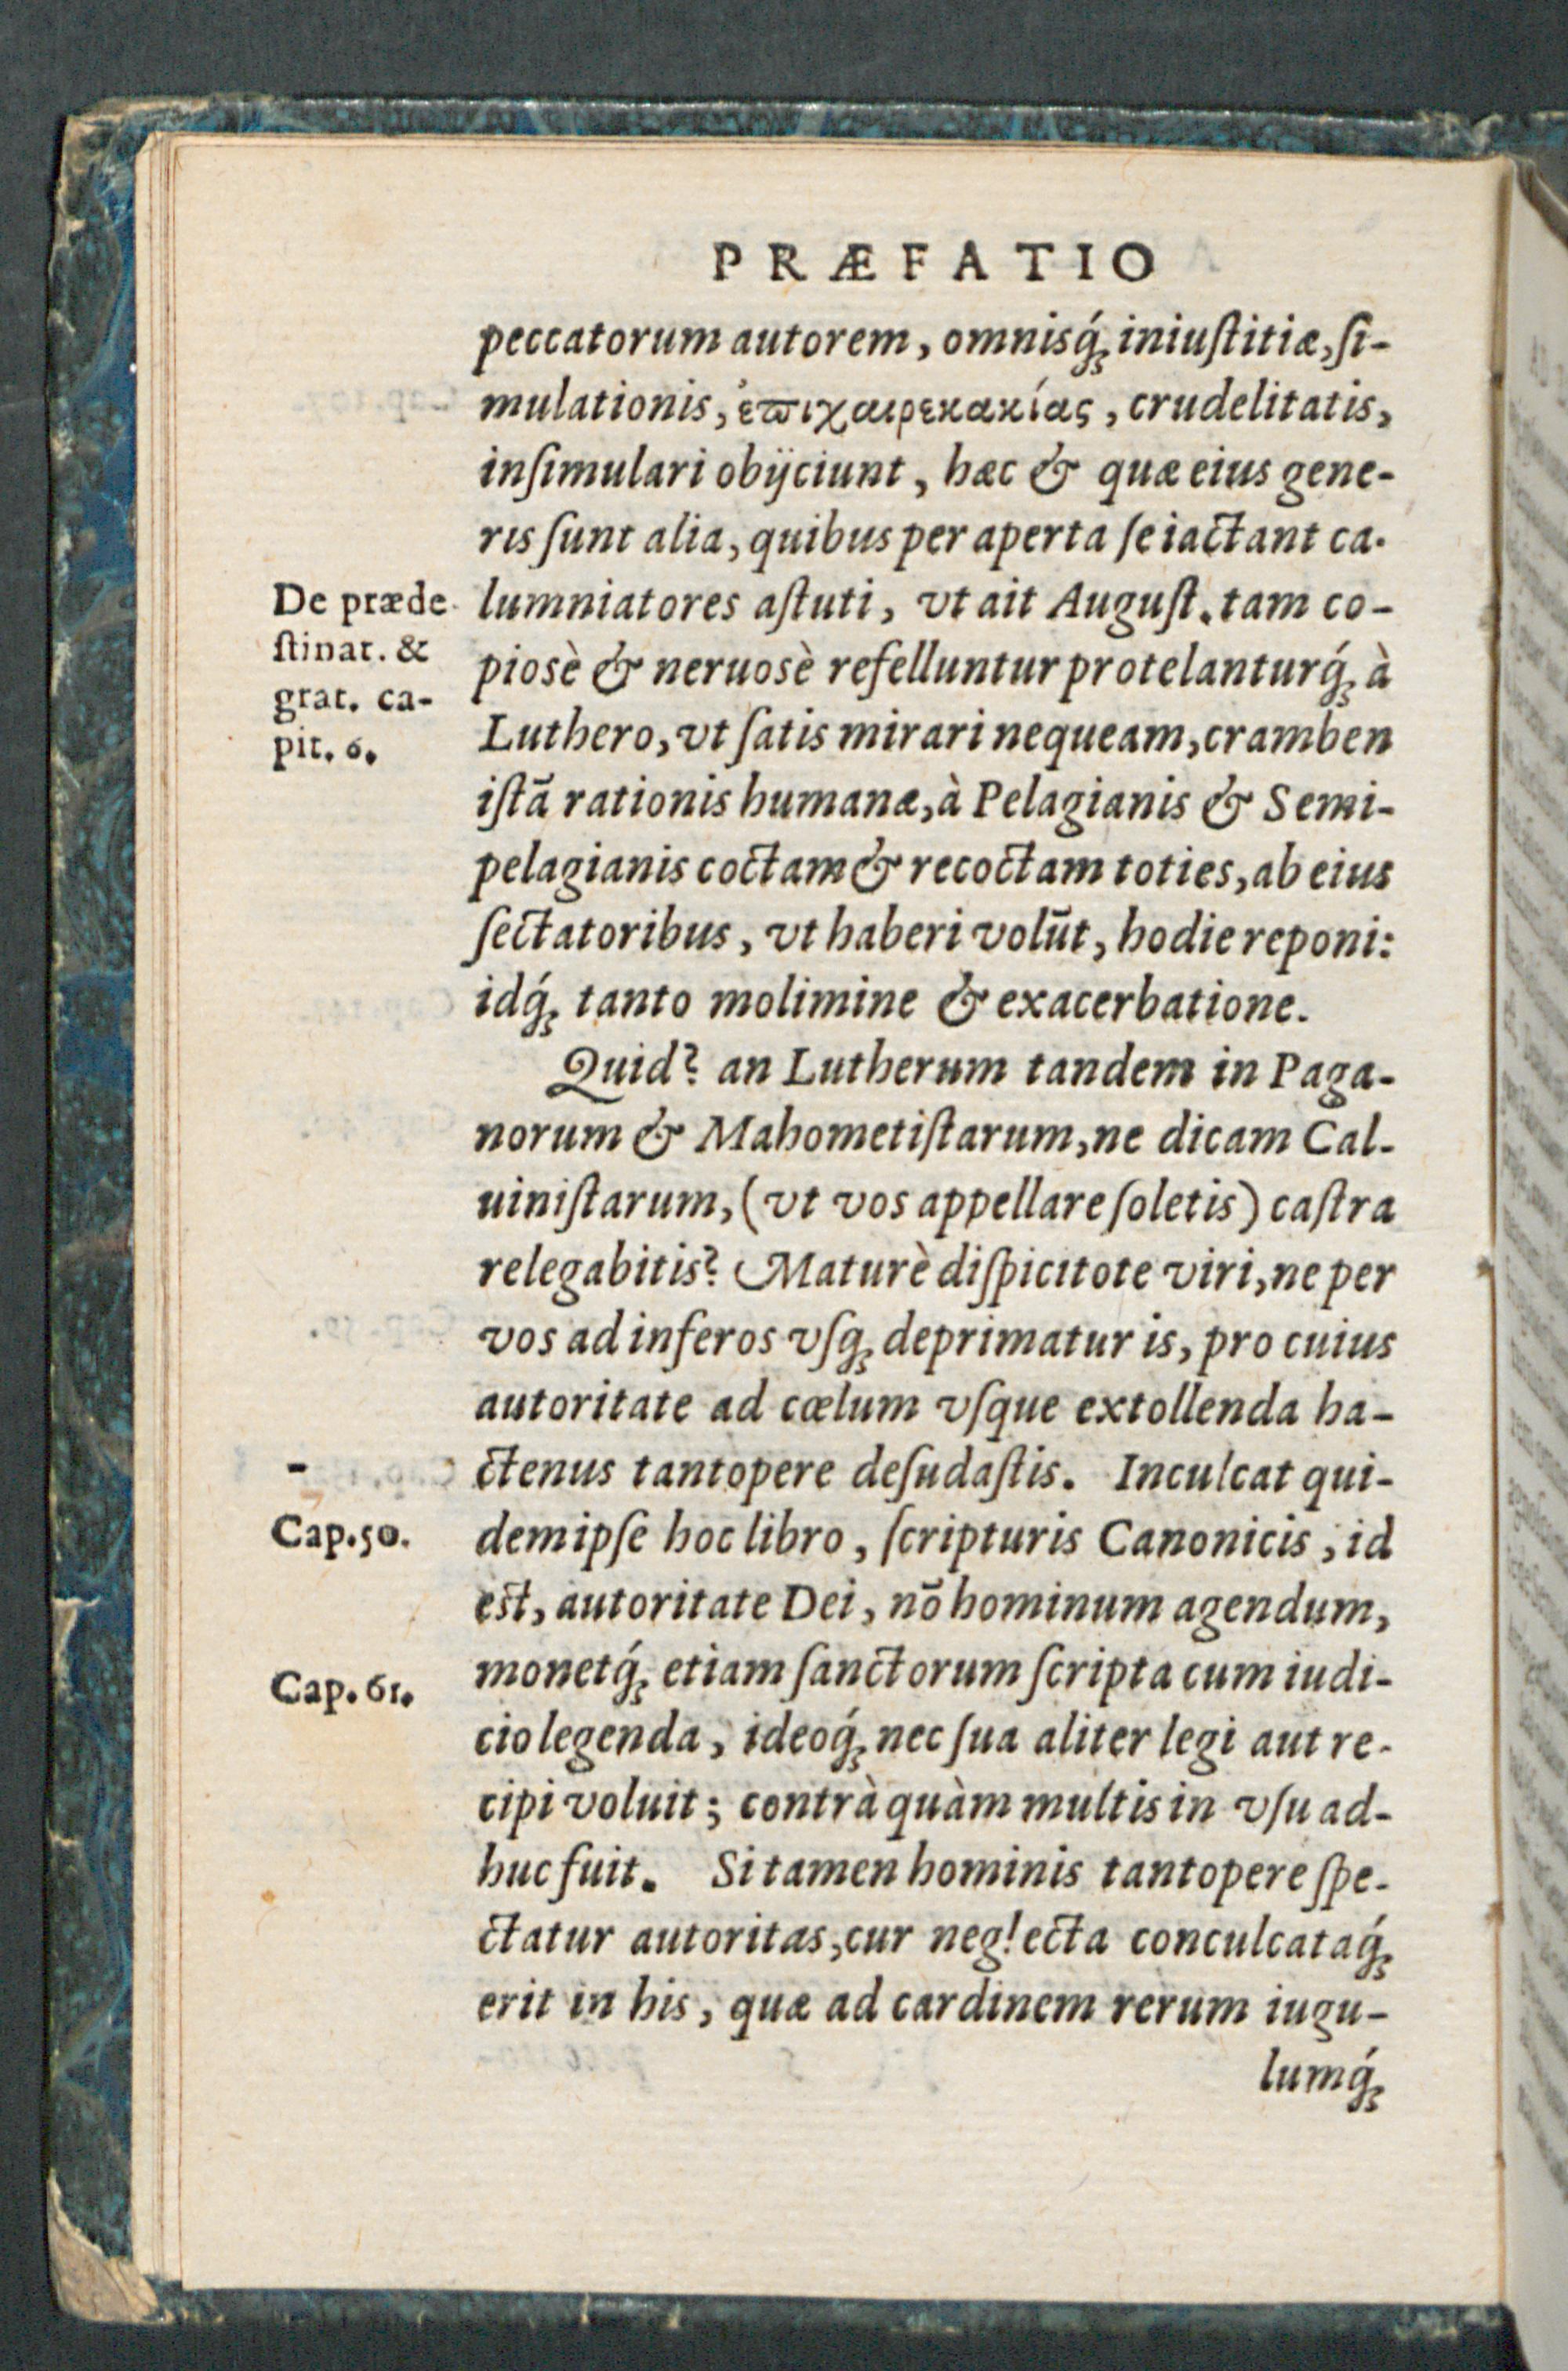 PRÆFATIO
peccatorum autorem, omnisq́ꝫ iniuſtitiæ, ſi-
mulationis, ἐπιχαιρεκακίας, crudelitatis,
inſimulari obijciunt, hæc & quæ eius gene-
ris ſunt alia, quibus per aperta ſe iactant ca-
De præde-
lumniatores aſtuti, vt ait Auguſt. tam co-
ſtinat. &
pioſè & neruosè refelluntur protelanturq́ꝫ à
grat. ca-
Luthero, vt ſatis mirari nequeam, cramben
pit. 6.
iſtā rationis humanæ, à Pelagianis & Semi-
pelagianis coctam & recoctam toties, ab eius
ſectatoribus, vt haberi volūt, hodie reponi:
idq́ꝫ tanto molimine & exacerbatione.
Quid? an Lutherum tandem in Paga-
norum & Mahometiſtarum, ne dicam Cal-
uiniſtarum, (vt vos appellare ſoletis) caſtra
relegabitis? Maturè diſpicitote viri, ne per
vos ad inferos vſqꝫ deprimatur is, pro cuius
autoritate ad cœlum vſque extollenda ha-
ctenus tantopere deſudaſtis. Inculcat qui-
Cap. 50.
dem ipſe hoc libro, ſcripturis Canonicis, id
est, autoritate Dei, nō hominum agendum,
Cap. 61.
monetq́ꝫ etiam ſanctorum ſcripta cum iudi-
cio legenda, ideoq́ꝫ nec ſua aliter legi aut re-
cipi voluit; contrà quàm multis in vſu ad-
huc fuit. Si tamen hominis tantopere ſpe-
ctatur autoritas, cur neglecta conculcataq́ꝫ
erit in his, quæ ad cardinem rerum iugu-
lumq́ꝫ